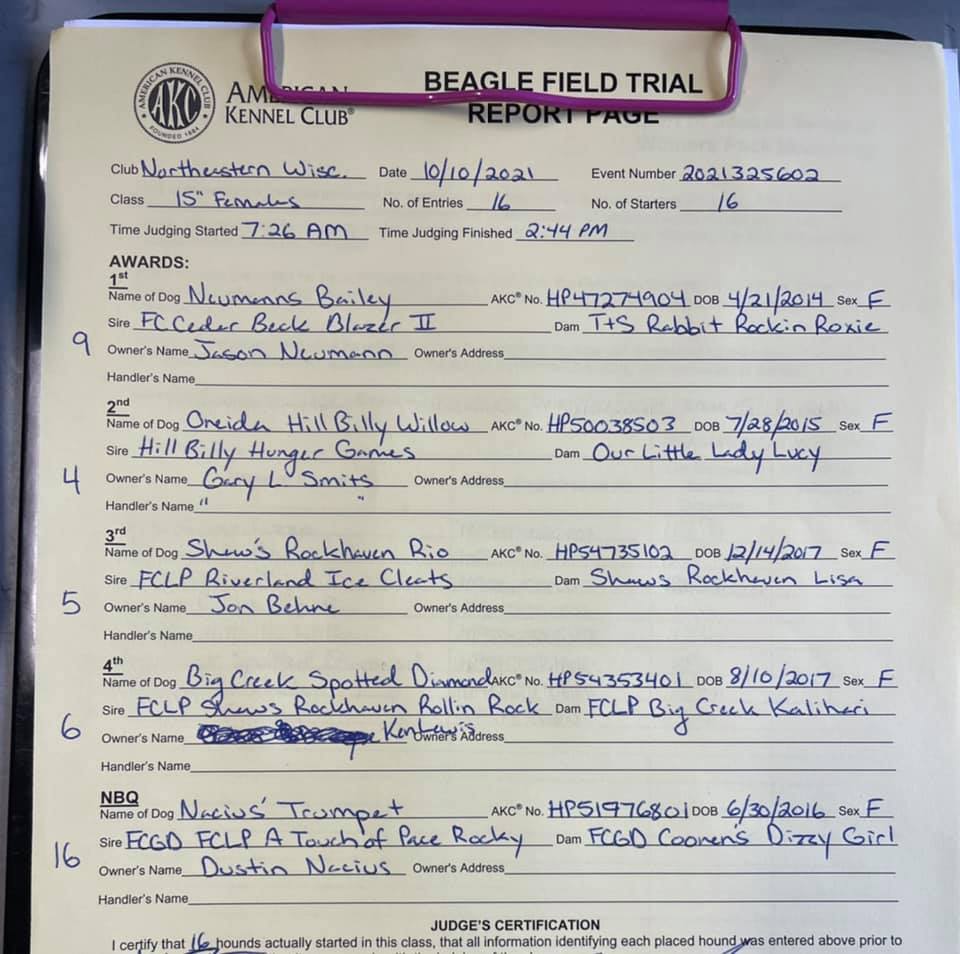 AMERICAN KENNEL CLUB
AKC
FOUNDED 1884
AMERICAN
KENNEL CLUB®
BEAGLE FIELD TRIAL
REPORT PAGE
Club Northeastern Wisc. Date 10/10/2021 Event Number 2021325602
Class 15" Females No. of Entries 16 No. of Starters 16
Time Judging Started 7:26 AM Time Judging Finished 2:44 PM
AWARDS:
1st
Name of Dog Neumanns Bailey AKC® No. HP47274904 DOB 4/21/2014 Sex F
Sire FC Ceder Beck Blazer II Dam T+S Rabbit Rockin Roxie
9 Owner's Name Jason Neumann Owner's Address
Handler's Name
2nd
Name of Dog Oneida Hill Billy Willow AKC® No. HP50038503 DOB 7/28/2015 Sex F
Sire Hill Billy Hunger Games Dam Our Little Lady Lucy
4 Owner's Name Gary L Smits Owner's Address
Handler's Name " "
3rd
Name of Dog Shaw's Rockhaven Rio AKC® No. HP54735102 DOB 12/14/2017 Sex F
Sire FCLP Riverland Ice Cleats Dam Shaws Rockhaven Lisa
5 Owner's Name Jon Behne Owner's Address
Handler's Name
4th
Name of Dog Big Creek Spotted Diamond AKC® No. HP54353401 DOB 8/10/2017 Sex F
Sire FCLP Shaws Rockhaven Rollin Rock Dam FCLP Big Creek Kalihari
6 Owner's Name Ken Lewis Owner's Address
Handler's Name
NBQ
Name of Dog Nacius' Trumpet AKC® No. HP51976801 DOB 6/30/2016 Sex F
Sire FCGD FCLP A Touch of Pace Rocky Dam FCGD Coonen's Dizzy Girl
16 Owner's Name Dustin Nacius Owner's Address
Handler's Name
JUDGE'S CERTIFICATION
I certify that 16 hounds actually started in this class, that all information identifying each placed hound was entered above prior to